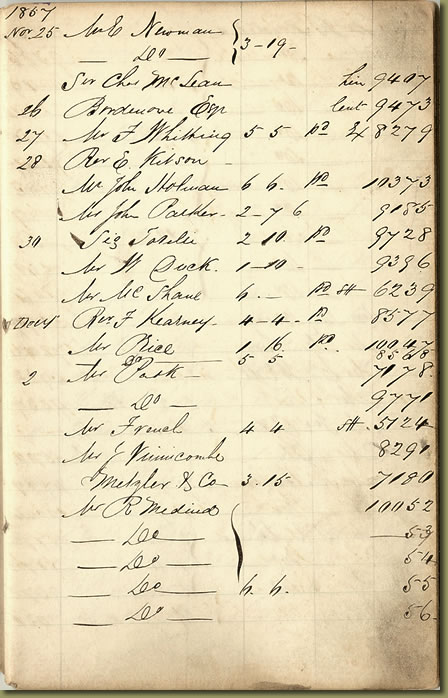 1857
Nov 25 Mr E Newman 3-19-
— Do —
Sir Chas McLean hire 9407
26 Bordenove Esq lent 9473
27 Mr F Whiting 5 5 Pd Ex 8279
28 Rev E Kitson -
Mr John Holman 6 6. Pd 10373
Mr John Parker- 2-7 6 9185
30 Sig 2 10. Pd 9728
Mr W Duck. 1-10- 9396
Mr McShane 6.- Pd SH 6239
Dec 1 Rev F Kearney- 4-4- Pd 8577
Mr Rice 1 16. Pd. 10047
Do 5 5 8568
2 Mr Pask — 7178.
— Do — 9771
Mr French 4 4 SH. 5124
Mr J Vinnicombe 8291
Metzler & Co 3.15 7180
Mr R Medina 10052
— Do — — 53
— Do — 54
— Do — 6 6. 55
— Do — 56-